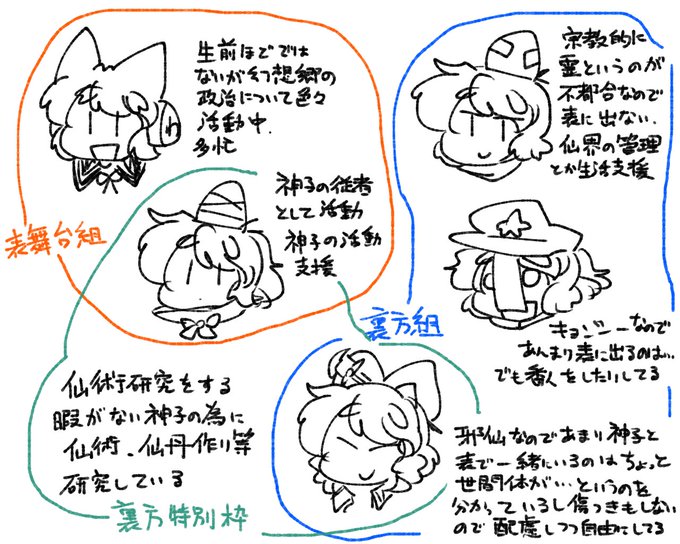 生前ほどでは
ないが幻想郷の
政治について色々
活動中.
多忙
わ
表舞台組
神子の従者
として活動
神子の活動
支援
宗教的に
霊というのが
不都合なので
表に出ない.
仙界の管理
とか生活支援
裏方組
キョンシーなので
あんまり表に出るのは…
でも番人をしたいしてる
仙術研究をする
暇がない神子の為に
仙術、仙丹作り等
研究している
裏方特別枠
邪仙なのであまり神子と
表で一緒にいるのはちょっと
世間体が… というのを
分かっているし傷つきもしない
ので配慮しつつ自由にしてる